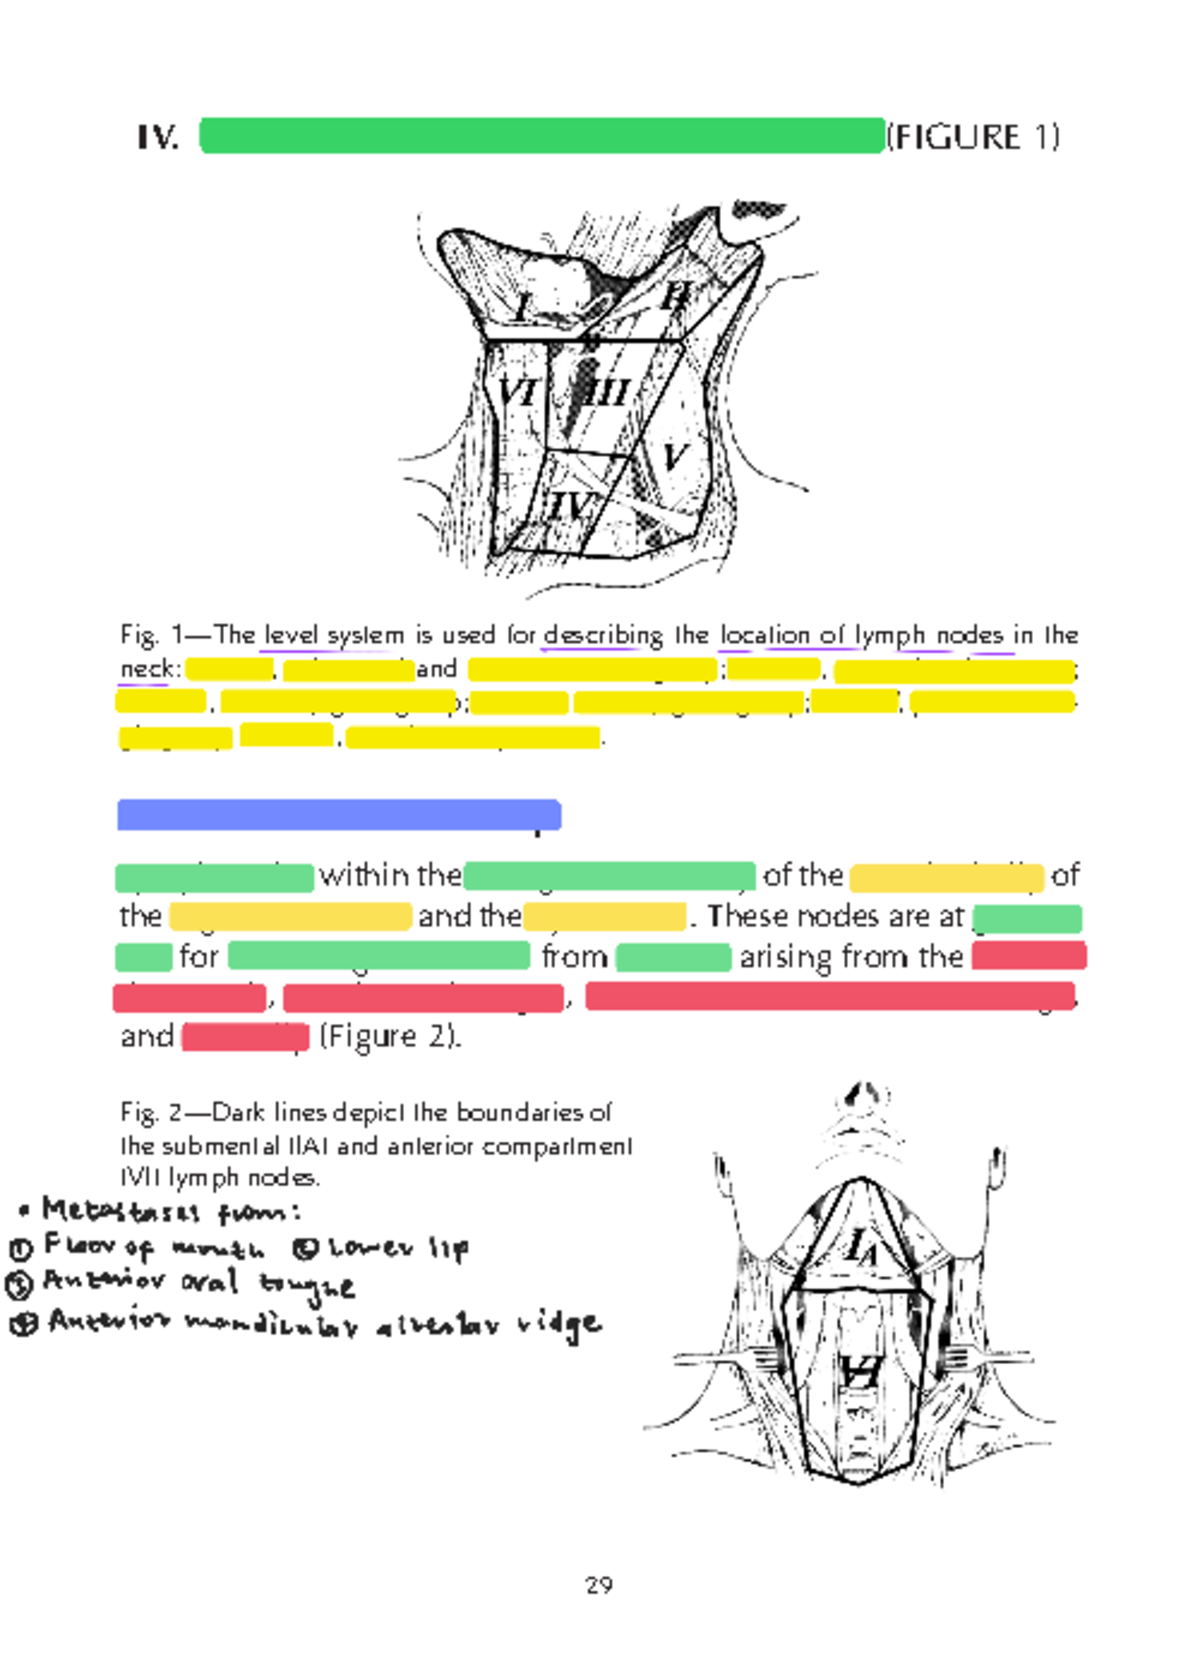 IV. (FIGURE 1)
I
II
VI
III
V
IV
Fig. 1—The level system is used for describing the location of lymph nodes in the
neck: , and ; , ;
, ; , ; ,
, .
within the of the of
the and the . These nodes are at
for from arising from the
, , ,
and (Figure 2).
Fig. 2—Dark lines depict the boundaries of
the submental (IA) and anterior compartment
(VI) lymph nodes.
• Metastases from:
① Floor of mouth ② Lower lip
③ Anterior oral tongue
④ Anterior mandicular alveolar ridge
IA
VI
29